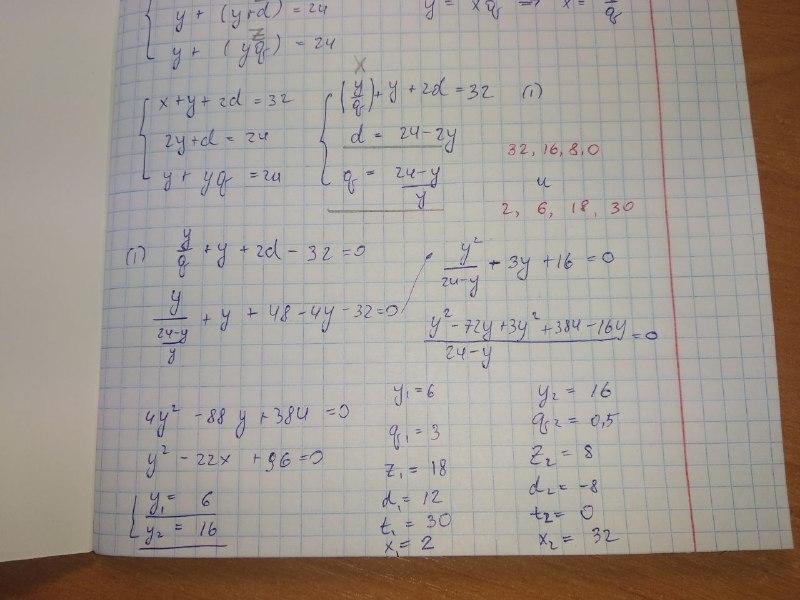 y + (y+d) = 24
y = xq => x = y/q
z
y + (yq) = 24
x
x+y+2d = 32
(y/q) + y + 2d = 32 (1)
2y+d = 24
d = 24-2y
y + yq = 24
q = (24-y)/y
32, 16, 8, 0
и
2, 6, 18, 30
(1) y/q + y + 2d - 32 = 0
y/((24-y)/y) + y + 48 - 4y - 32 = 0
y²/(24-y) - 3y + 16 = 0
(y² - 72y + 3y² + 384 - 16y)/(24-y) = 0
4y² - 88y + 384 = 0
y² - 22x + 96 = 0
y₁ = 6
y₂ = 16
y₁ = 6
q₁ = 3
z₁ = 18
d₁ = 12
t₁ = 30
x₁ = 2
y₂ = 16
q₂ = 0,5
z₂ = 8
d₂ = -8
t₂ = 0
x₂ = 32